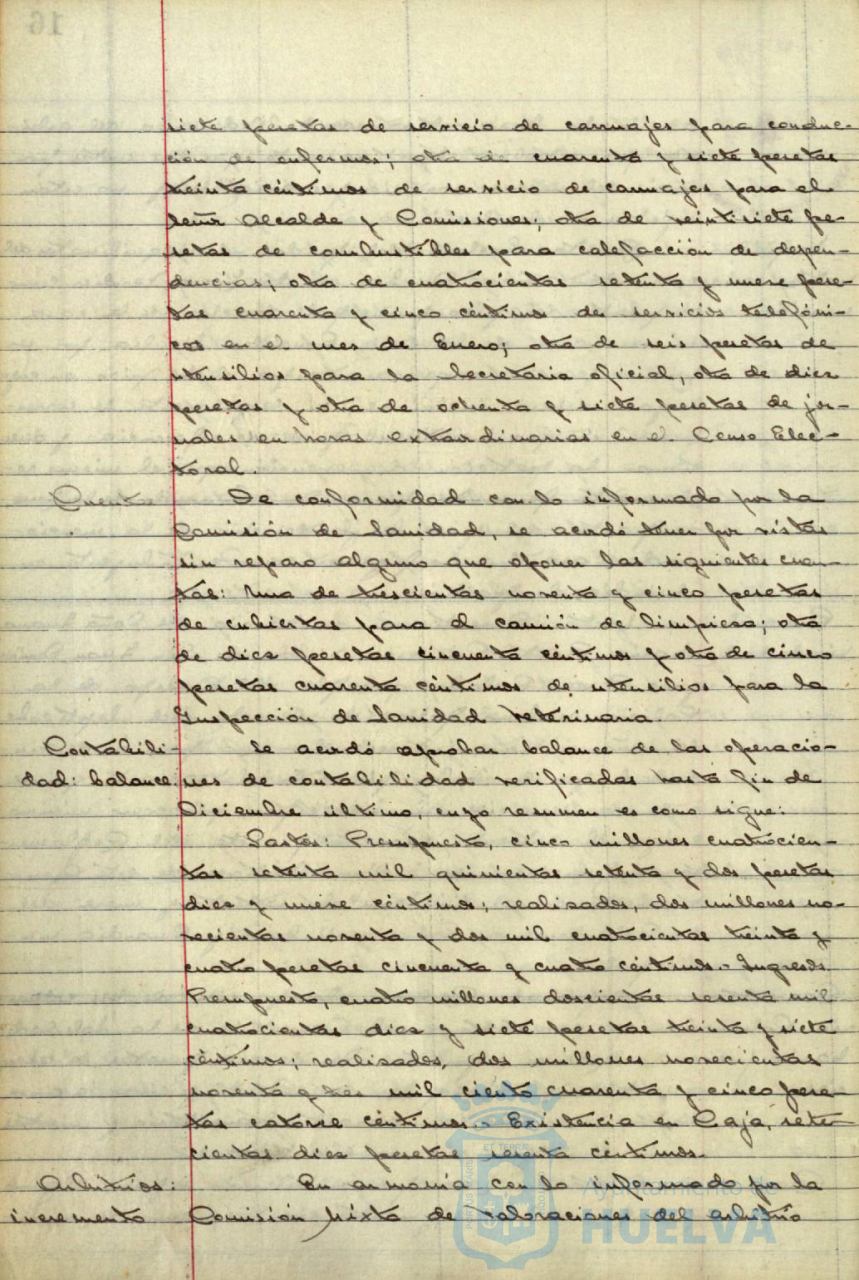 16
siete pesetas de servicio de carruajes para conduc-
ción de enfermos; otra de cuarenta y siete pesetas
treinta céntimos de servicio de carruajes para el
señor Alcalde y Comisiones; otra de veintisiete pe-
setas de combustibles para calefacción de depen-
dencias; otra de cuatrocientas setenta y nueve pese-
tas cuarenta y cinco céntimos de servicios telefóni-
cos en el mes de Enero; otra de seis pesetas de
utensilios para la Secretaria oficial, otra de diez
pesetas y otra de ochenta y siete pesetas de jor-
nales en horas extraordinarias en el Censo Elec-
toral.
Cuentas De conformidad con lo informado por la
Comisión de Sanidad, se acordó tener por vistas
sin reparo alguno que oponer las siguientes cuen-
tas: Una de trescientas noventa y cinco pesetas
de cubiertas para el camión de limpieza; otra
de diez pesetas cincuenta céntimos y otra de cinco
pesetas cuarenta céntimos de utensilios para la
Inspección de Sanidad Veterinaria.
Contabili- Se acordó aprobar balance de las operacio-
dad: balance. nes de contabilidad verificadas hasta fin de
Diciembre último, cuyo resumen es como sigue:
Gastos: Presupuesto, cinco millones cuatrocien-
tas setenta mil quinientas setenta y dos pesetas
diez y nueve céntimos; realizados, dos millones no-
vecientas noventa y dos mil cuatrocientas treinta y
cuatro pesetas cincuenta y cuatro céntimos.- Ingresos.
Presupuesto, cuatro millones doscientas sesenta mil
cuatrocientas diez y siete pesetas treinta y siete
céntimos; realizados, dos millones novecientas
noventa y tres mil ciento cuarenta y cinco pese-
tas catorce céntimos.- Existencia en Caja, sete-
cientas diez pesetas sesenta céntimos.
Arbitrios: En armonía con lo informado por la
incremento Comisión Mixta de valoraciones del arbitrio
Ayuntamiento de
HUELVA